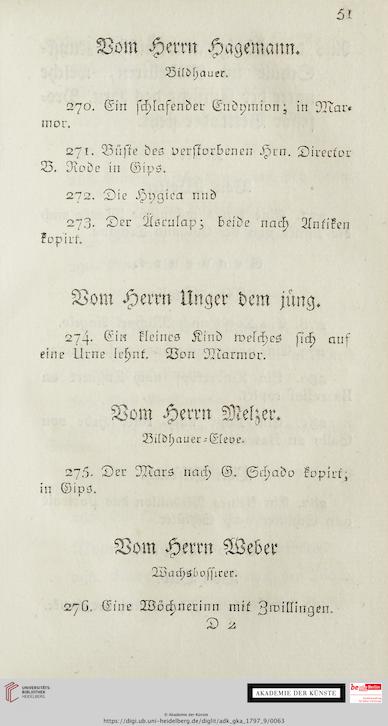 51
Vom Herrn Hagemann.
Bildhauer.
270. Ein schlafender Endymion; in Mar-
mor.
271. Büste des verstorbenen Hrn. Director
B. Rode in Gips.
272. Die Hygiea und
273. Der Äsculap; beide nach Antiken
kopirt.
Vom Herrn Unger dem jüng.
274. Ein kleines Kind welches sich auf
eine Urne lehnt. Von Marmor.
Vom Herrn Melzer.
Bildhauer-Eleve.
275. Der Mars nach G. Schado kopirt;
in Gips.
Vom Herrn Weber
Wachsbossirer.
276. Eine Wöchnerinn mit Zwillingen.
D 2
UNIVERSITÄTS-
BIBLIOTHEK
HEIDELBERG
AKADEMIE DER KÜNSTE
© Akademie der Künste
https://digi.ub.uni-heidelberg.de/diglit/adk_gka_1797_9/0063